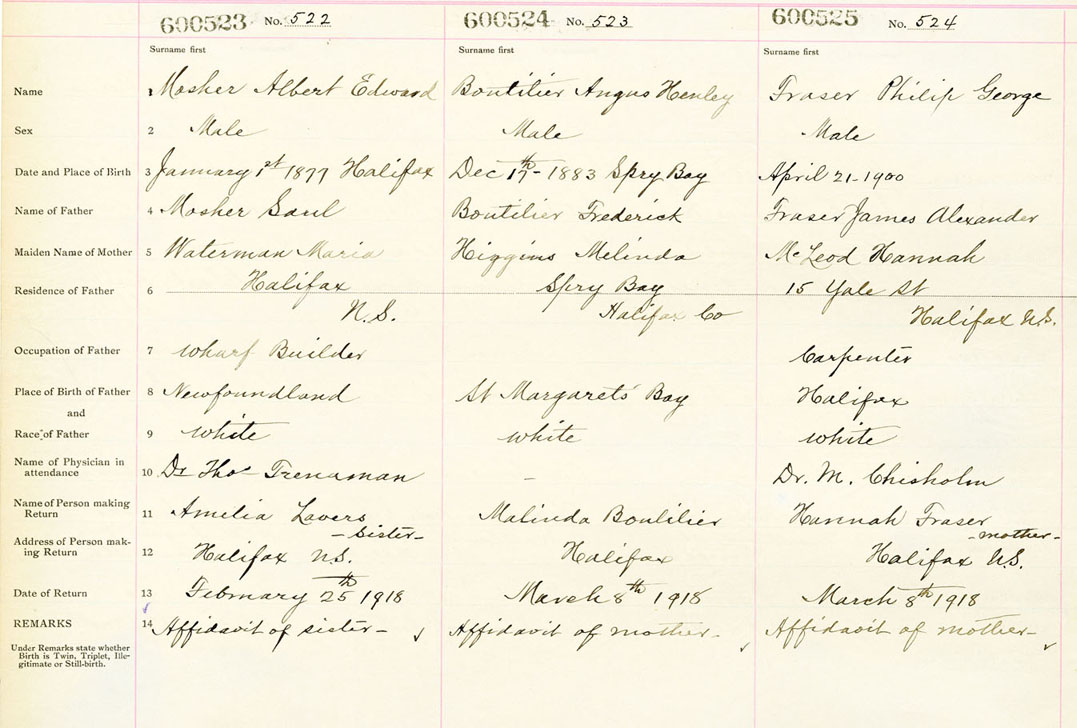 600523 No. 522 600524 No. 523 600525 No. 524
Surname first Surname first Surname first
Name 1 Mosher Albert Edward Boutilier Angus Henley Fraser Philip George
Sex 2 Male Male Male
Date and Place of Birth 3 January 1st 1877 Halifax Dec 17th - 1883 Spry Bay April 21-1900
Name of Father 4 Mosher Saul Boutilier Frederick Fraser James Alexander
Maiden Name of Mother 5 Waterman Maria Higgins Melinda McLeod Hannah
Residence of Father 6 Halifax Spry Bay 15 Yale St
N.S. Halifax Co Halifax N.S.
Occupation of Father 7 Wharf Builder Carpenter
Place of Birth of Father 8 Newfoundland St Margarets Bay Halifax
and
Race of Father 9 white white white
Name of Physician in
attendance 10 Dr Thos Trenaman - Dr. M. Chisholm
Name of Person making
Return 11 Amelia Lavers Malinda Boutilier Hannah Fraser
- sister - - mother -
Address of Person mak-
ing Return 12 Halifax N.S. Halifax Halifax N.S.
Date of Return 13 February 25th 1918 March 8th 1918 March 8th 1918
REMARKS 14 Affidavit of sister - ✓ Affidavit of mother - ✓ Affidavit of mother - ✓
Under Remarks state whether
Birth is Twin, Triplet, Ille-
gitimate or Still-birth.